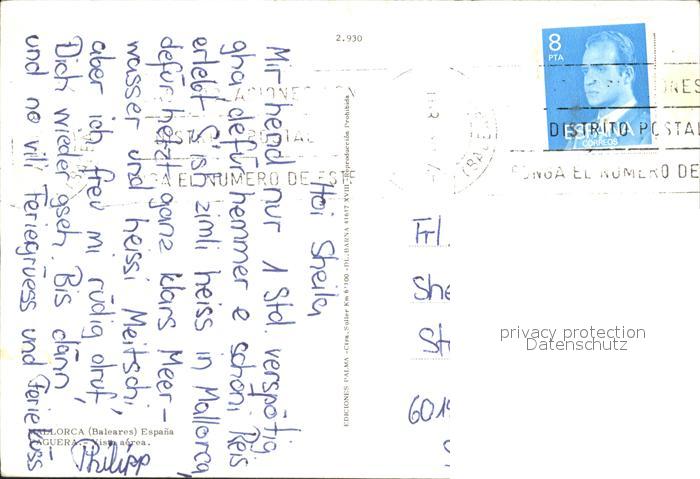 2.930
8
PTA
ESPAÑA
CORREOS
DISTRITO POSTAL
PONGA EL NUMERO DE
GA EL NUMERO DE ESTE
Hoi Sheila
Mir hend nur 1 Std. verspötig
gha defür hemmer e schöni Reis
erlebt. S'ist zimli heiss in Mallorca,
defür hetzt ganz klars Meer-
wasser und heissi Meitschi,
aber ich freu mi rüdig druf,
Dich wieder gseh. Bis dänn,
und no vili Feriegrüess und Ferieküss
Philipp
MALLORCA (Baleares) España
PAGUERA.- Vista aérea.
EDICIONES PALMA -Ctra. Sóller Km 6'700 -DL. BARNA 41617 XVIII- Reproducción Prohibida
Frl.
She
St
privacy protection
Datenschutz